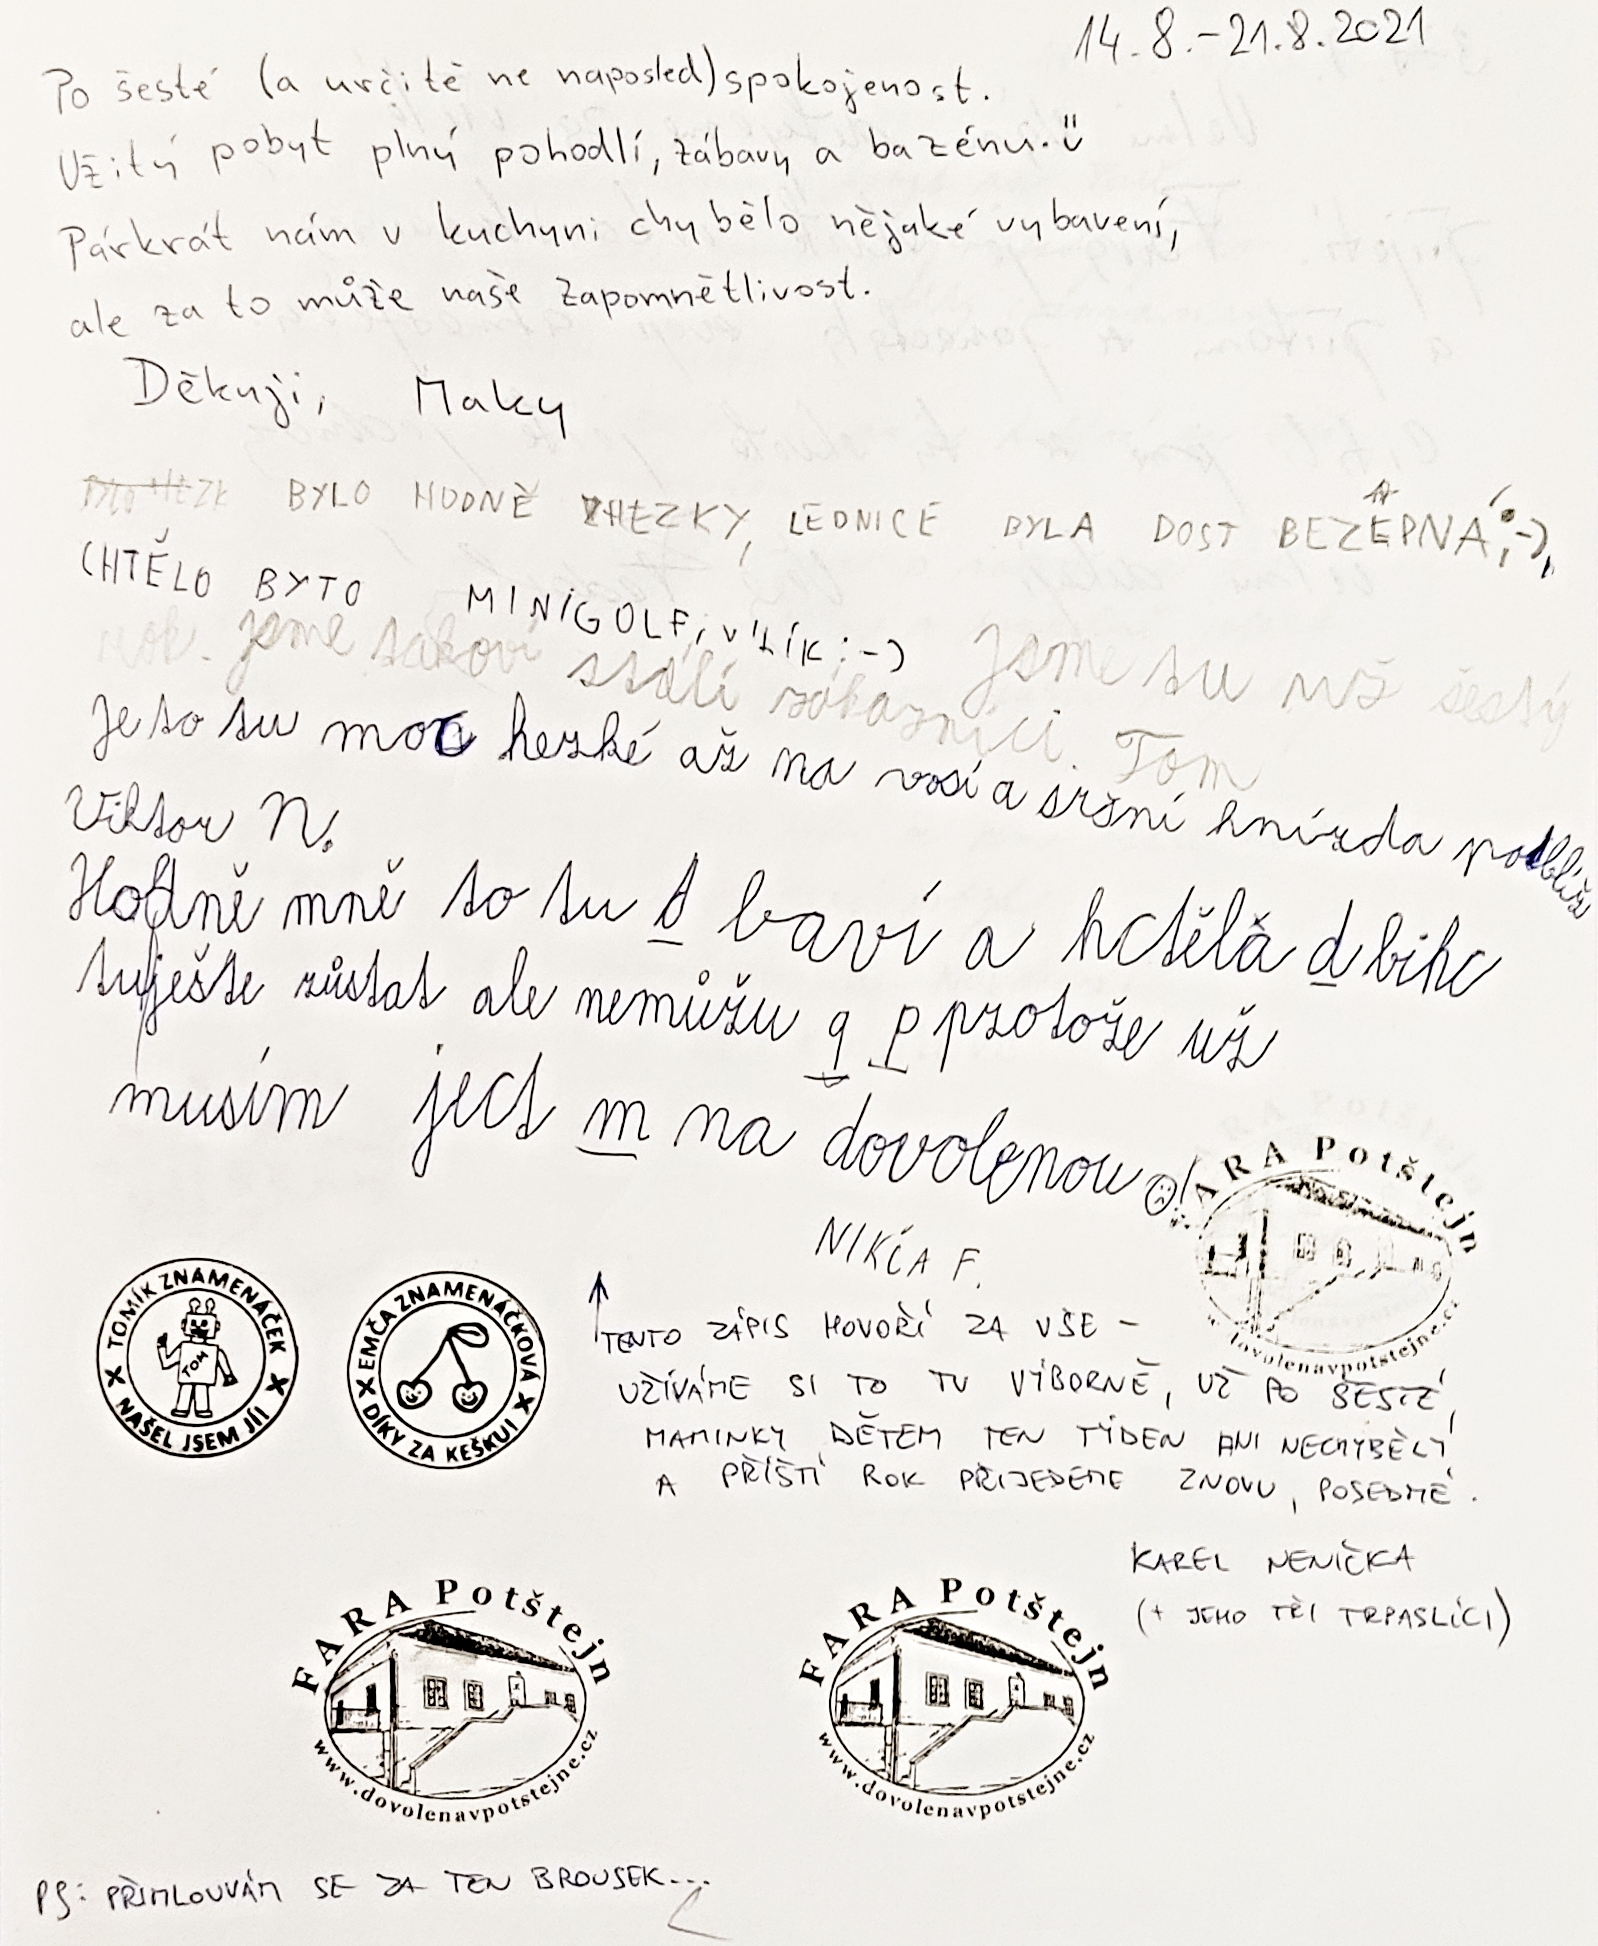 14.8.-21.8.2021
Po šesté (a určitě ne naposled) spokojenost.
Užitý pobyt plný pohodlí, zábavy a bazénu.
Párkrát nám v kuchyni chybělo nějaké vybavení,
ale za to může naše zapomnětlivost.
Děkuji, Maky
BYLO HODNĚ HEZKY, LEDNICE BYLA DOST BEZEPNÁ ;-),
CHTĚLO BYTO MINIGOLF, :-)
Jsme tu už šestý
rok. jsme takoví stálí zákazníci. Tom
Je to tu moc hezké až na vosí a sršní hnízda poblíž
Viktor N.
Hodně mně to tu d baví a hctěla d bihc
tuješte zůstat ale nemůžu q p protože už
musím ject m na dovolenou!
NIKČA F.
FARA Potštejn
www.dovolenavpotstejne.cz
TOMÍK ZNAMENÁČEK
TOM
NAŠEL JSEM JI!
EMČA ZNAMENÁČKOVÁ
DÍKY ZA KEŠKU!
TENTO ZÁPIS HOVOŘÍ ZA VŠE -
UŽÍVÁME SI TO TU VÝBORNĚ, UŽ PO ŠESTÉ,
MAMINKY DĚTEM TEN TÝDEN ANI NECHYBĚLY
A PŘÍŠTÍ ROK PŘIJEDEME ZNOVU, POSEDMÉ.
KAREL NENIČKA
(+ JEHO TŘI TRPASLÍCI)
FARA Potštejn
www.dovolenavpotstejne.cz
FARA Potštejn
www.dovolenavpotstejne.cz
PS: PŘIMLOUVÁM SE ZA TEN BROUSEK...